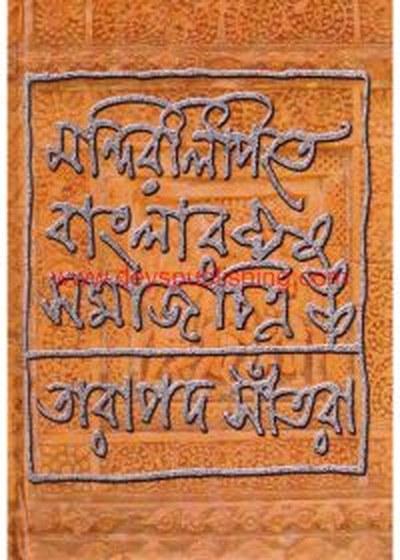 মন্দিরলিপিতে
বাংলার
www.deyspublishing.com
সমাজচিত্র
তারাপদ সাঁতরা